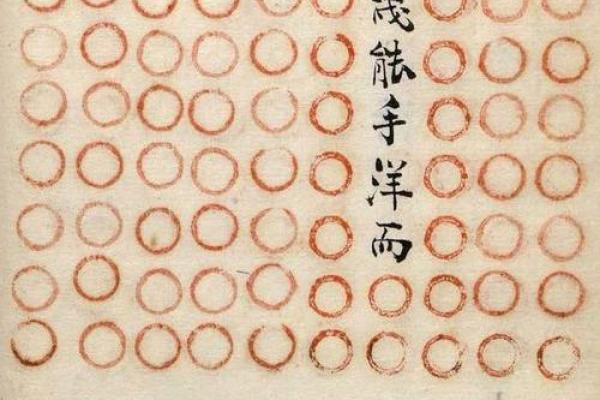 能手洋而